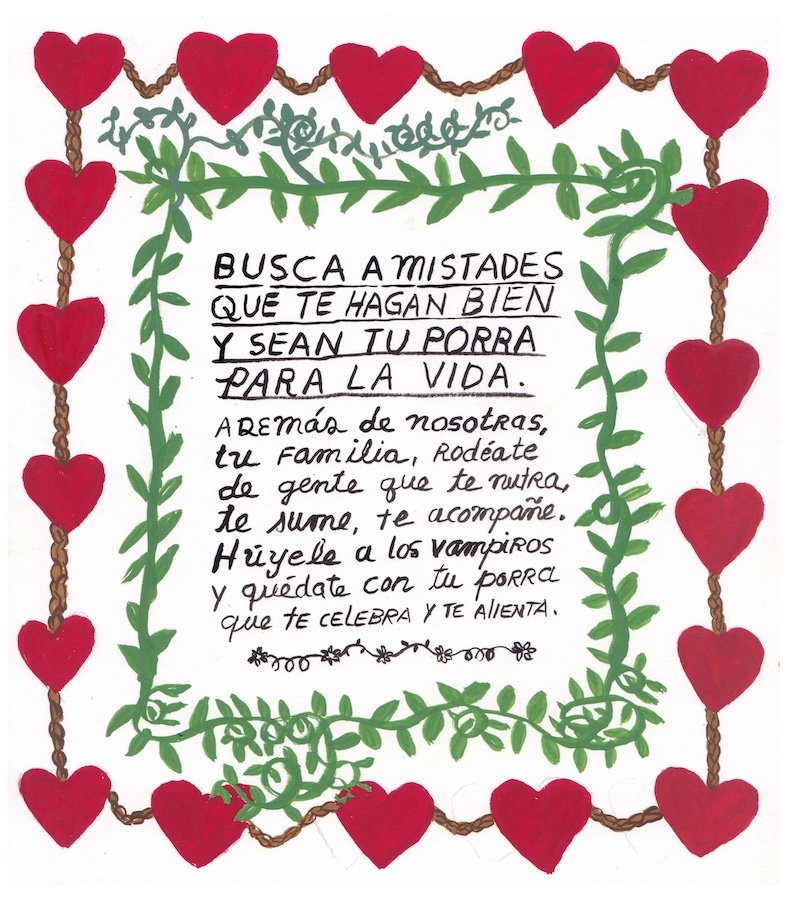 BUSCA AMISTADES
QUE TE HAGAN BIEN
Y SEAN TU PORRA
PARA LA VIDA.
ADEMÁS de nosotras,
tu Familia, Rodéate
de gente que te nutra,
te sume, te acompañe.
Húyele a los vampiros
y quédate con tu porra
que TE CELEBRA Y TE ALIENTA.